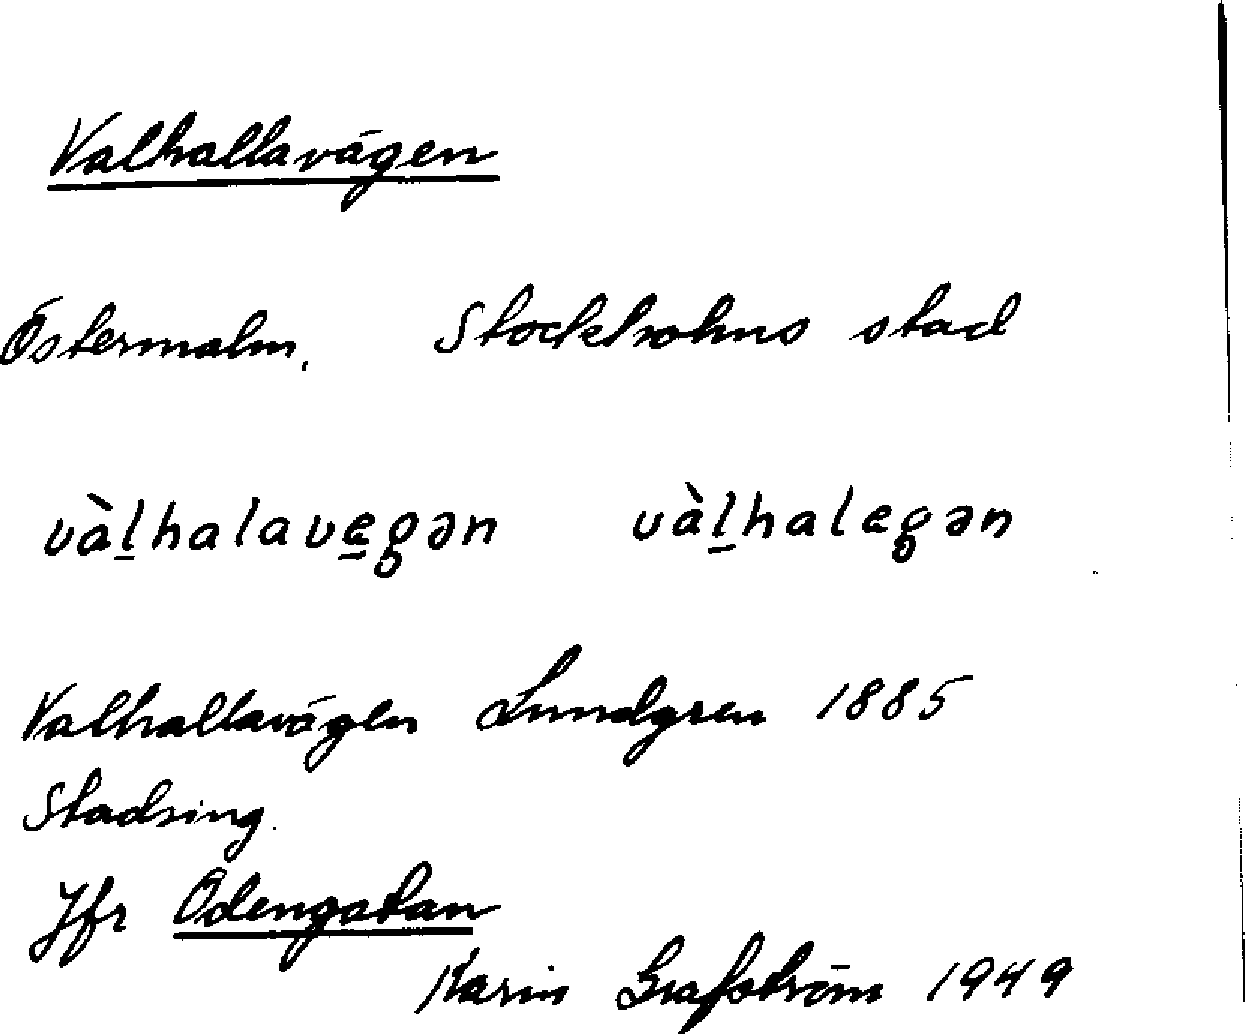 Valhallavägen
Östermalm. Stockholms stad
vàl̲halave̲gən vàl̲halegən
Valhallavägen Lundgren 1885
Stadsing.
Jfr Odengatan
Karin Grafström 1949